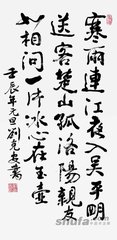 寒雨連江夜入吴平明
送客楚山孤洛陽親友
如相問一片冰心在玉壺
壬辰年元旦劉克安書